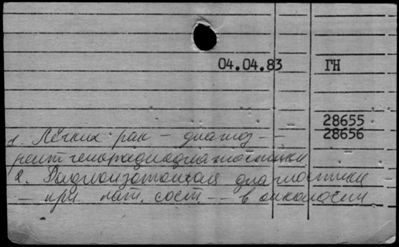 04.04.83 ГН
28655
28656
1. Лёгких рак – диагноз –
рентгенорадиодиагностики
2. Радиоизотопная диагностика
– при пат. сост. – в онкологии